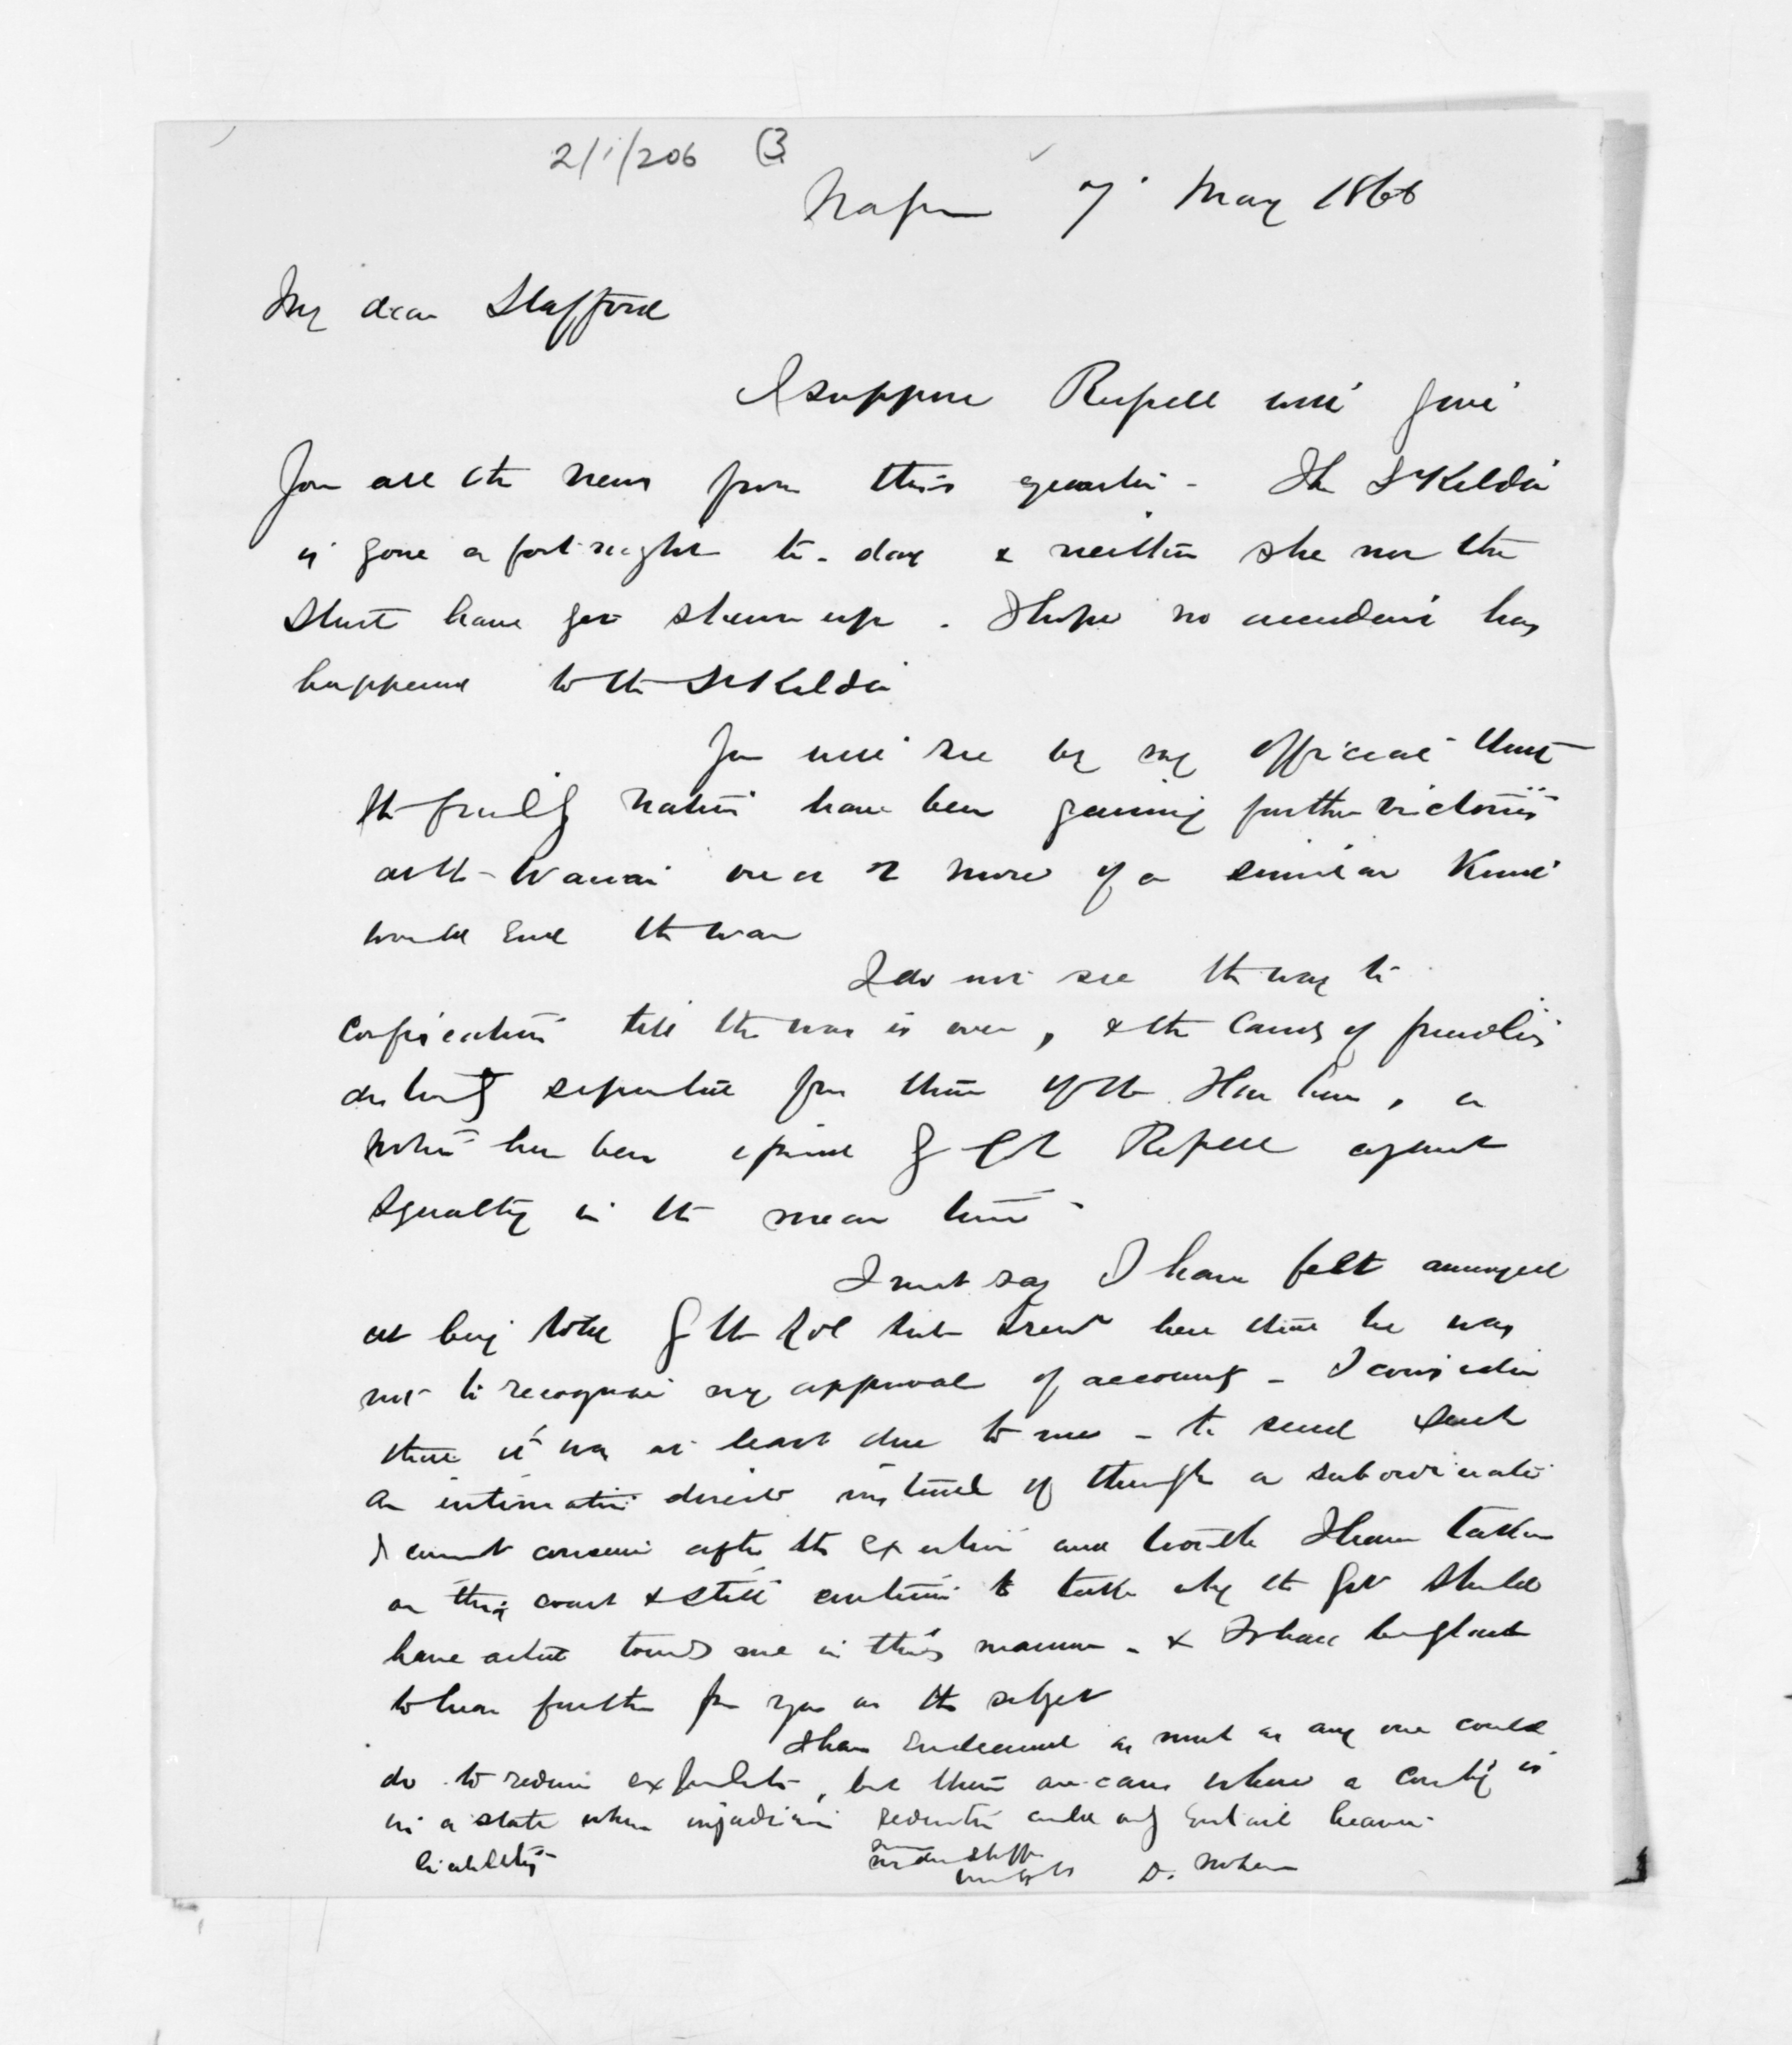 2/1/206 (3
Napier 7 May 1866
My dear Stafford
I suppose Russell will give
you all the news from this quarter - The St Kilda
is gone a fortnight to-day & neither she nor the
Sturt have yet shewn up. I hope no accident has
happened to the St Kilda
You will see by my official that
the friendly natives have been gaining further victories
at the Wairoa one or 2 more of a similar kind
would end the war
I do not see the way to
confiscation till the war is over, & the lands of friendlies
distinctly separate from those of the Hau haus, a
notice has been issued by Russell against
in the mean time
I must say I have felt annoyed
at being told by the here that he was
not to recognise my approval of accounts - I consider
that it was at least due to me - to send such
an intimation direct instead of through a subordinate
I cannot conceive after the exertion and trouble I have taken
on this coast & still continue to take why the Govt should
have acted towards me in this manner - & I shall be glad
to hear further from you on the subject
I have endeavored as much as any one could
do to reduce expenditure, but there are cases where a country is
in a state when injudicious reduction could only entail heavier
liability
D. McLean